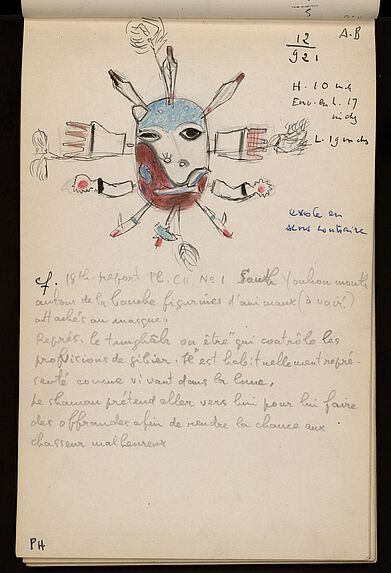 A.B
12
921
H. 10 inchs
Env. en L. 17
inchs
L. 19 inchs
existe en
sens contraire
cf. 18th. report Pl. CII No 1 South Youkon montre
autour de la bouche figurines d'animaux (à voir)
attachés au masque.
Représ. le tunghâk ou être "qui contrôle les
provisions de gibier. Il" est habituellement repré-
senté comme vivant dans la lune.
Le shaman prétend aller vers lui pour lui faire
des offrandes afin de rendre la chance aux
chasseur malheureux
PH